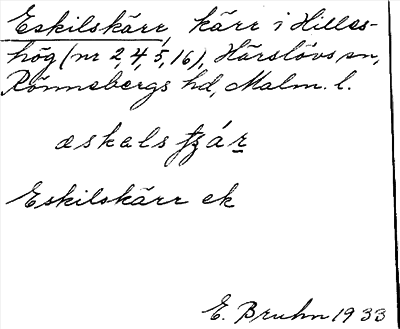 Eskilskärr, kärr i Hilles-
hög (nr 2, 4, 5, 16), Härslövs sn,
Rönnebergs hd, Malm. l.
Eskilskärr ek
E. Bruhn 1933